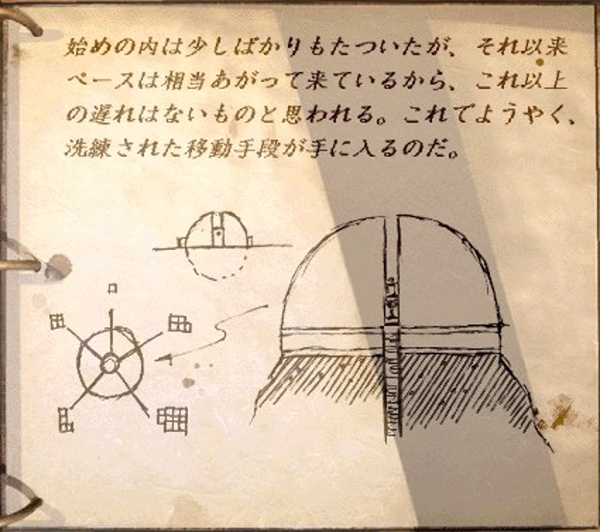 始めの内は少しばかりもたついたが、それ以来
ペースは相当あがって来ているから、これ以上
の遅れはないものと思われる。これでようやく、
洗練された移動手段が手に入るのだ。